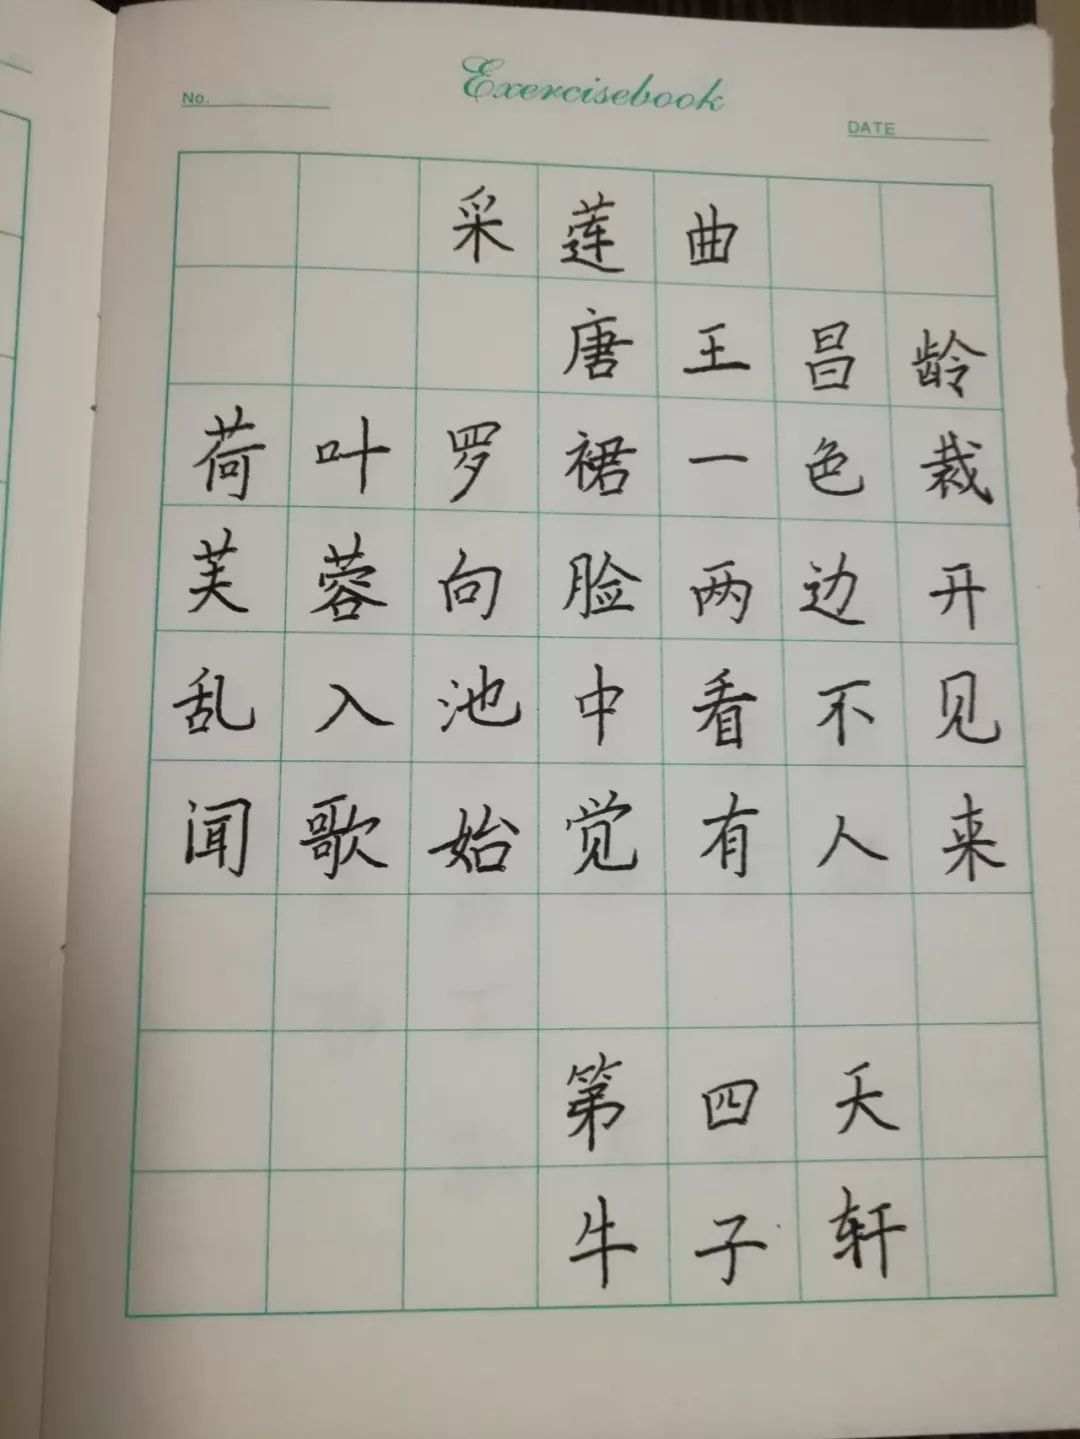 Exercisebook
No.
DATE
采莲曲
唐王昌龄
荷叶罗裙一色裁
芙蓉向脸两边开
乱入池中看不见
闻歌始觉有人来
第四天
牛子轩